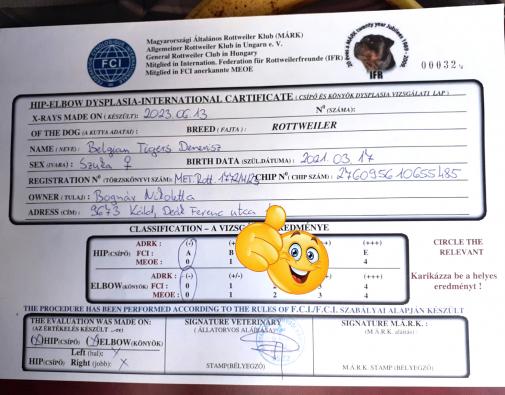 Magyarországi Általános Rottweiler Klub (MÁRK)
Allgemeiner Rottweiler Klub in Ungarn e. V.
General Rottweiler Club in Hungary
Mitglied in Internation. Federation für Rottweilerfreunde (IFR)
Mitglied in FCI anerkannte MEOE
FCI
IFR
00032
HIP-ELBOW DYSPLASIA-INTERNATIONAL CERTIFICATE (CSÍPŐ ÉS KÖNYÖK DYSPLASIA VIZSGÁLATI LAP)
X-RAYS MADE ON (KÉSZÜLT): 2023.06.13 Nº (SZÁMA):
OF THE DOG (A KUTYA ADATAI) : BREED (FAJTA) : ROTTWEILER
NAME (NEVE): Belgian Tigers Demenisz
SEX (IVARA) : Szuka ♀ BIRTH DATA (SZÜL.DÁTUMA) : 2021.03.17
REGISTRATION Nº (TÖRZSKÖNYVI SZÁM): MET.Rott. CHIP Nº( CHIP SZÁM) :
OWNER (TULAJ) : Bognár Nikoletta
ADRESS (CÍM) : 9673 Káld, Deák Ferenc utca
CLASSIFICATION – A VIZSG EDMÉNYE
ADRK : (-) (+++)
HIP(CSÍPŐ) FCI : A B E
MEOE : 0 1 4
ADRK : (-) (+/-) (+++)
ELBOW(KÖNYÖK) FCI : 0 1 4
MEOE : 0 1 2 3 4
CIRCLE THE
RELEVANT
Karikázza be a helyes
eredményt !
THE PROCEDURE HAS BEEN PERFORMED ACCORDING TO THE RULES OF F.C.I./F.C.I. SZABÁLYAI ALAPJÁN KÉSZÜLT
THE EVALUATION WAS MADE ON:
(AZ ÉRTÉKELÉS KÉSZÜLT :)
HIP(CSÍPŐ) ELBOW(KÖNYÖK)
Left (bal): X
HIP(CSÍPŐ) Right (jobb): X
SIGNATURE VETERINARY
(ÁLLATORVOS ALÁÍRÁSA) :
STAMP(BÉLYEGZŐ)
SIGNATURE M.Á.R.K. :
(M.Á.R.K. aláírás) :
M.Á.R.K. STAMP (BÉLYEGZŐ)